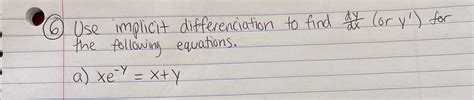 ⑥ Use implicit differenciation to find dy/dx (or y') for
the following equations.
a) xe^-y = x+y